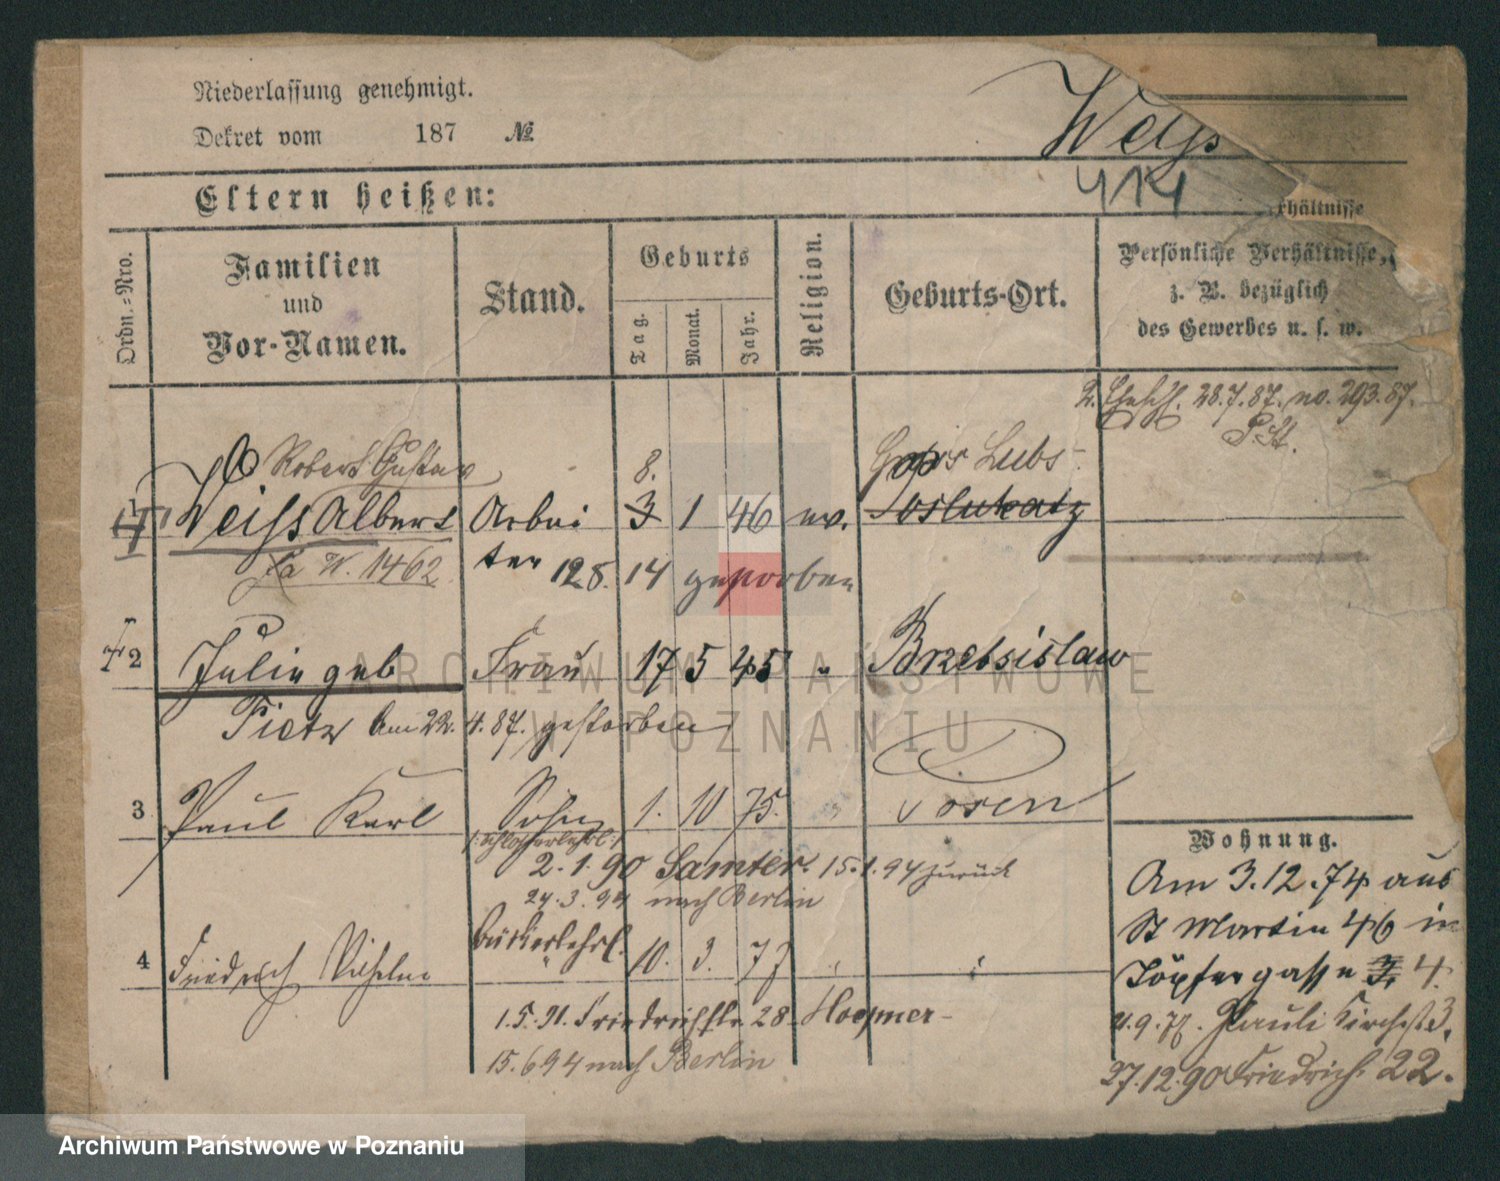 Niederlassung genehmigt.
Dekret vom 187 №
Weiss
414
Eltern heißen:
rhältnisse
Ordn.=Nro.
Familien
und
Vor-Namen.
Stand.
Geburts
Tag.
Monat.
Jahr.
Religion.
Geburts-Ort.
Persönliche Verhältnisse,
z. B. bezüglich
des Gewerbes u. s. w.
2. 28.7.87. no. 293.87.
P. St.
Robert Gustav 8.
1 Weiss Albert Arbei 3 1 46 ev.
ter 128. 14 gestorben
W. 1462
2 Julie geb Frau 17 5 45 " Brzetsislaw
Tietz Am 22. 4. 87. gestorben
3 Paul Karl Sohn 1. 10 75. Posen
Schlosserlehrl.
2. 1. 90 Samter. 15. 1. 94 zurück
24. 3. 94 nach Berlin
Bäckerlehrl.
4 Friedrich Wilhelm 10. 3. 77
1. 5. 91. Friedrichstr. 28 Hoepner
15. 6 94 nach Berlin
Wohnung.
Am 3. 12. 74 aus
St Martin 46 in
Töpfergasse 4.
9. 77. Pauli Kirchst 3.
27. 12. 90 Friedrich. 22.
ARCHIWUM PAŃSTWOWE
W POZNANIU
Archiwum Państwowe w Poznaniu